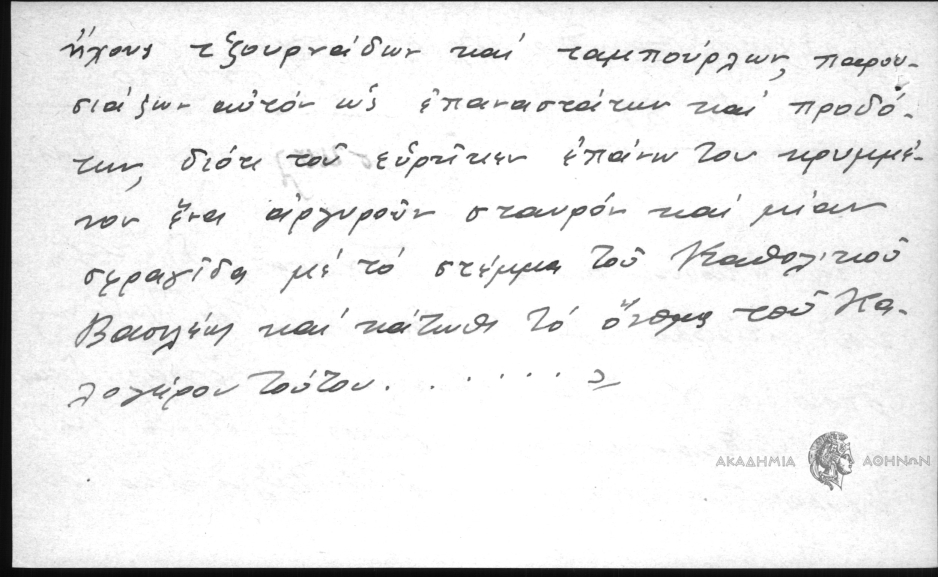 ἤχους τζουρνάδων καὶ ταμπούρλων, παρου-
σιάζων αὐτόν ὡς ἐπαναστάτην καὶ προδό-
την, διότι τοῦ εὑρῆκεν ἐπάνω του κρυμμέ-
νον ἕνα ἀργυροῦν σταυρόν καὶ μίαν
σφραγῖδα μέ τό στέμμα τοῦ Καθολικοῦ
Βασιλέως καὶ κάτωθι τό ὄνομα τοῦ Κα-
λογήρου τούτου . . . . . . . »
ΑΚΑΔΗΜΙΑ ΑΘΗΝΩΝ